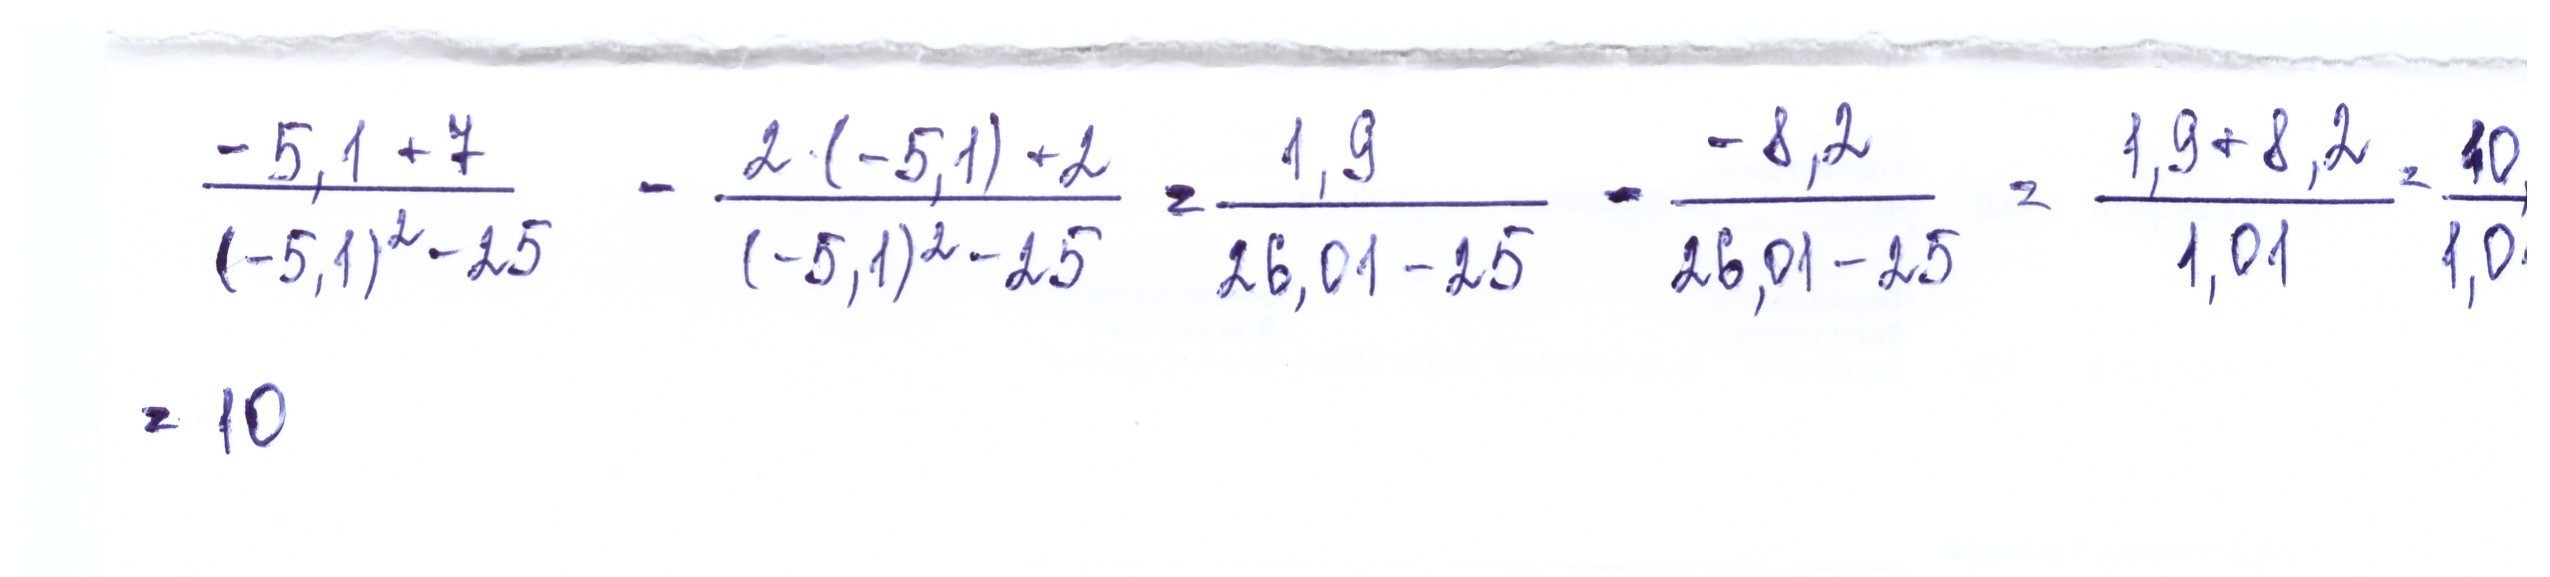 (-5,1+7)/((-5,1)²-25) - (2·(-5,1)+2)/((-5,1)²-25) = 1,9/(26,01-25) - (-8,2)/(26,01-25) = (1,9+8,2)/1,01 = 10,/1,0
= 10